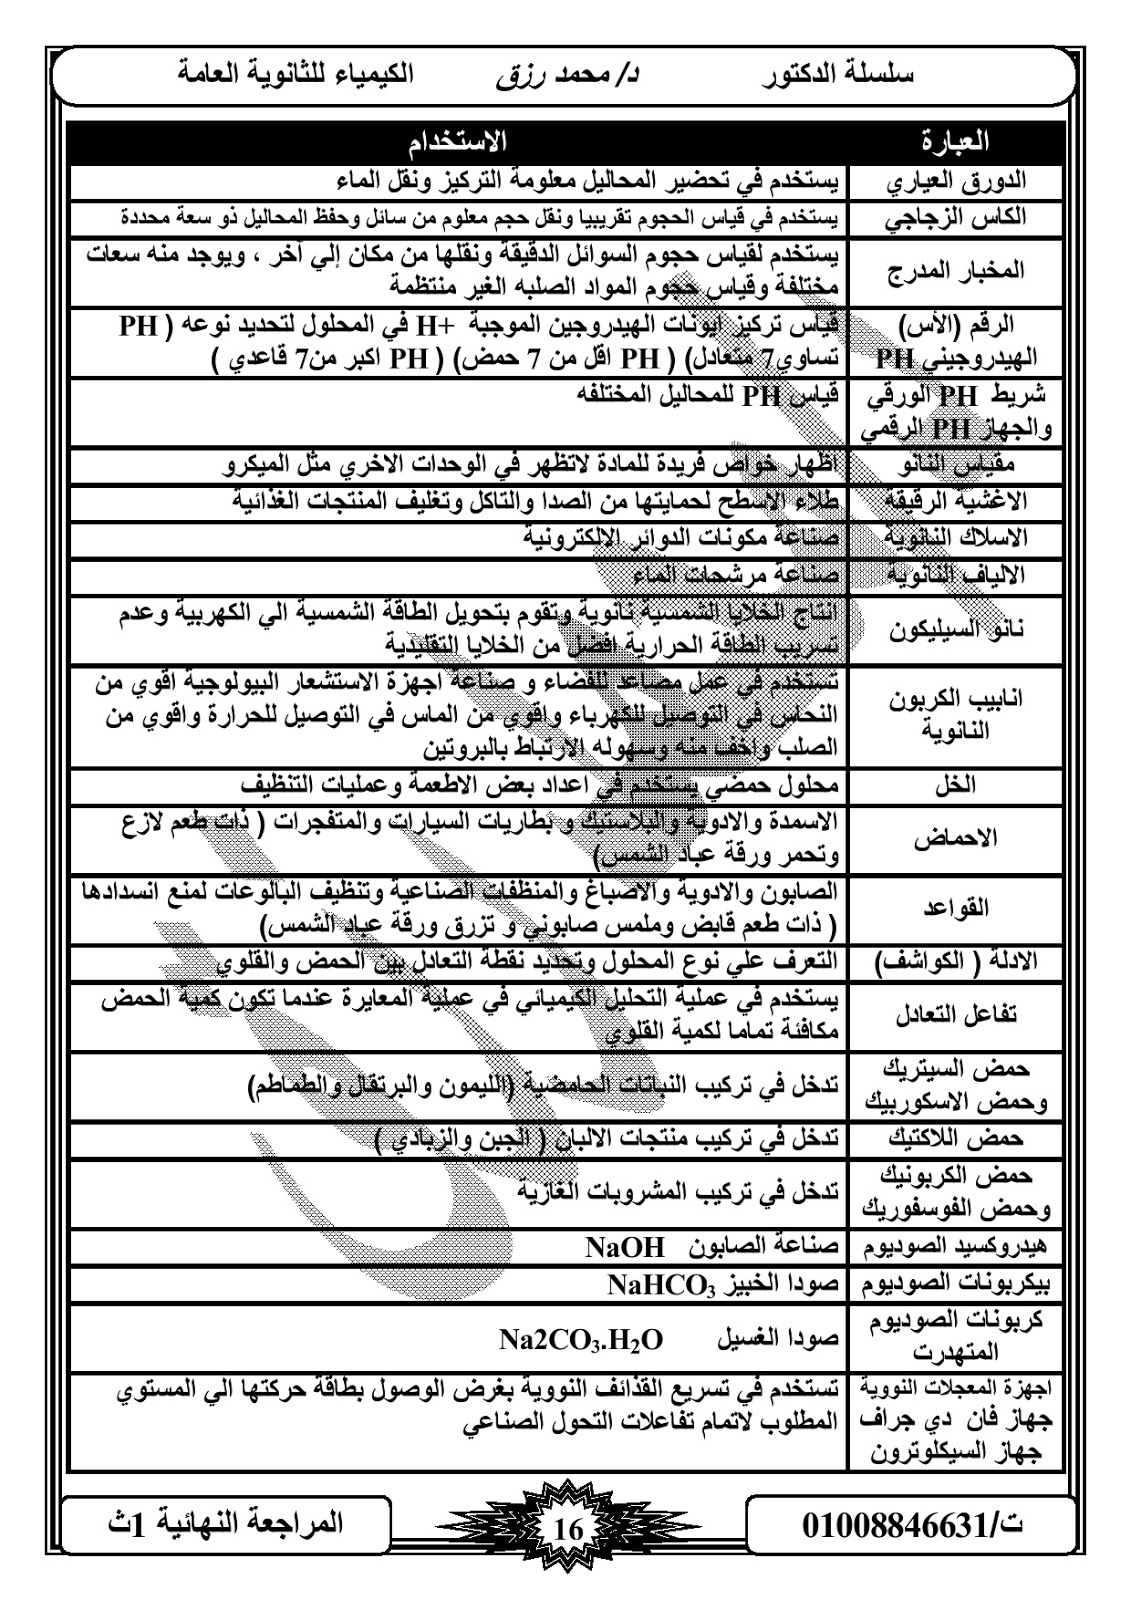 سلسلة الدكتور د/ محمد رزق الكيمياء للثانوية العامة
العبارة الاستخدام
الدورق العياري يستخدم في تحضير المحاليل معلومة التركيز ونقل الماء
الكاس الزجاجي يستخدم في قياس الحجوم تقريبيا ونقل حجم معلوم من سائل وحفظ المحاليل ذو سعة محددة
المخبار المدرج يستخدم لقياس حجوم السوائل الدقيقة ونقلها من مكان إلي آخر ، ويوجد منه سعات
مختلفة وقياس حجوم المواد الصلبه الغير منتظمة
الرقم (الأس) قياس تركيز ايونات الهيدروجين الموجبة H+ في المحلول لتحديد نوعه ( PH
الهيدروجيني PH تساوي7 متعادل) ( PH اقل من 7 حمض) ( PH اكبر من7 قاعدي )
شريط PH الورقي قياس PH للمحاليل المختلفه
والجهاز PH الرقمي
مقياس النانو اظهار خواص فريدة للمادة لاتظهر في الوحدات الاخري مثل الميكرو
الاغشية الرقيقة طلاء الاسطح لحمايتها من الصدا والتاكل وتغليف المنتجات الغذائية
الاسلاك النانوية صناعة مكونات الدوائر الالكترونية
الالياف النانوية صناعة مرشحات الماء
نانو السيليكون انتاج الخلايا الشمسية نانوية وتقوم بتحويل الطاقة الشمسية الي الكهربية وعدم
تسريب الطاقة الحرارية افضل من الخلايا التقليدية
انابيب الكربون تستخدم في عمل مصاعد للفضاء و صناعة اجهزة الاستشعار البيولوجية اقوي من
النانوية النحاس في التوصيل للكهرباء واقوي من الماس في التوصيل للحرارة واقوي من
الصلب واخف منه وسهوله الارتباط بالبروتين
الخل محلول حمضي يستخدم في اعداد بعض الاطعمة وعمليات التنظيف
الاحماض الاسمدة والادوية والبلاستيك و بطاريات السيارات والمتفجرات ( ذات طعم لازع
وتحمر ورقة عباد الشمس)
القواعد الصابون والادوية والاصباغ والمنظفات الصناعية وتنظيف البالوعات لمنع انسدادها
( ذات طعم قابض وملمس صابوني و تزرق ورقة عباد الشمس)
الادلة ( الكواشف) التعرف علي نوع المحلول وتحديد نقطة التعادل بين الحمض والقلوي
تفاعل التعادل يستخدم في عملية التحليل الكيميائي في عملية المعايرة عندما تكون كمية الحمض
مكافئة تماما لكمية القلوي
حمض السيتريك تدخل في تركيب النباتات الحامضية (الليمون والبرتقال والطماطم)
وحمض الاسكوربيك
حمض اللاكتيك تدخل في تركيب منتجات الالبان ( الجبن والزبادي )
حمض الكربونيك تدخل في تركيب المشروبات الغازية
وحمض الفوسفوريك
هيدروكسيد الصوديوم صناعة الصابون NaOH
بيكربونات الصوديوم صودا الخبيز NaHCO₃
كربونات الصوديوم صودا الغسيل Na2CO₃.H₂O
المتهدرت
اجهزة المعجلات النووية تستخدم في تسريع القذائف النووية بغرض الوصول بطاقة حركتها الي المستوي
جهاز فان دي جراف المطلوب لاتمام تفاعلات التحول الصناعي
جهاز السيكلوترون
ت/01008846631 16 المراجعة النهائية 1ث